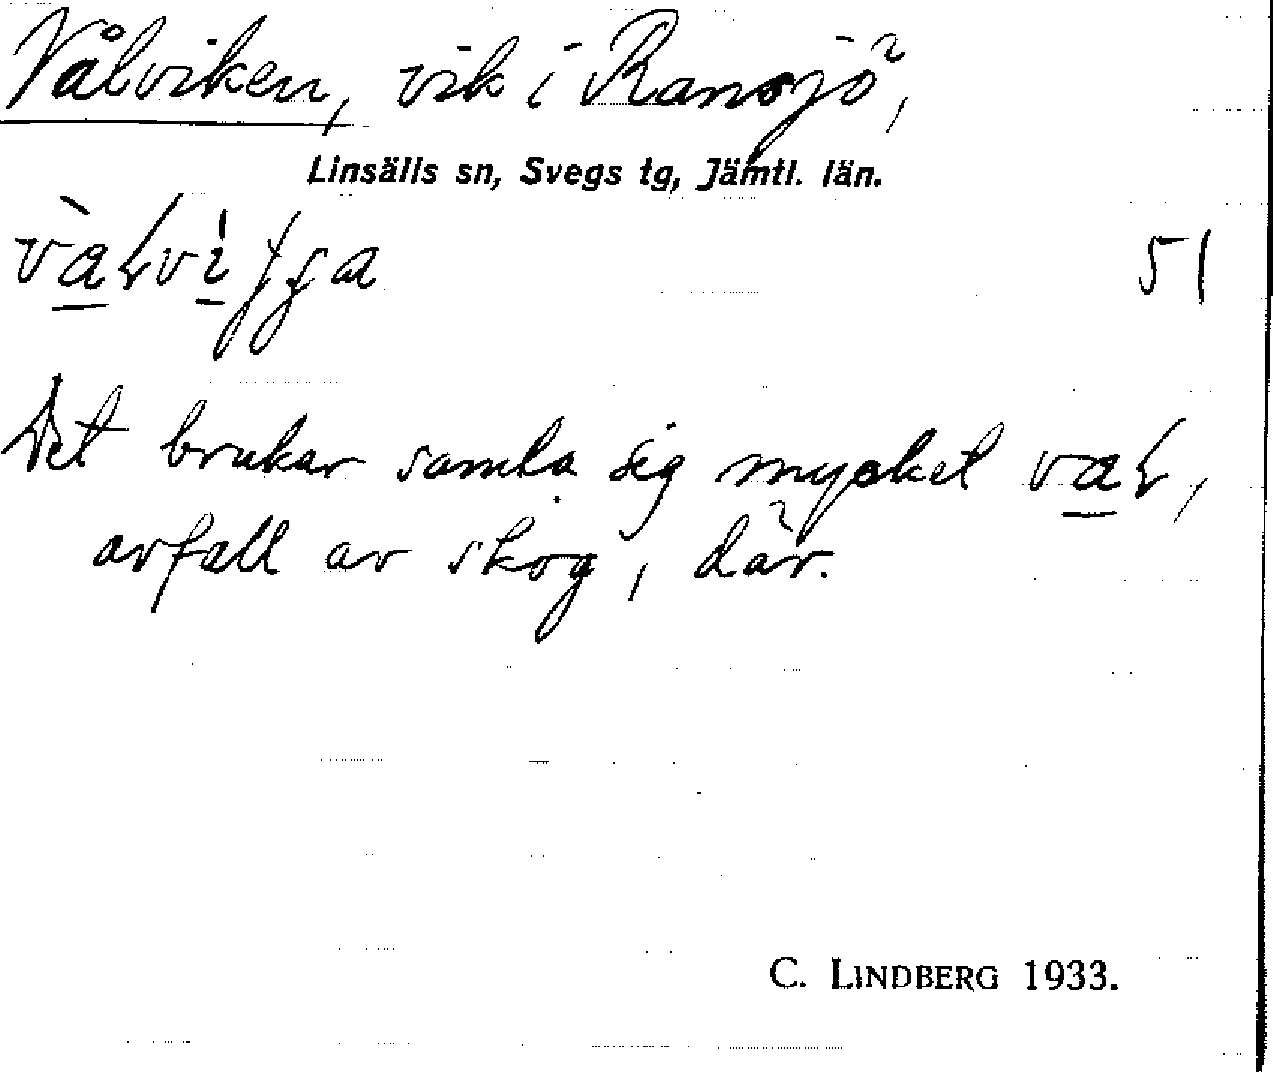 Vålviken, vik i Ransjö,
Linsälls sn, Svegs tg, Jämtl. län.
51
Det brukar samla sig mycket
avfall av skog, där.
C. LINDBERG 1933.